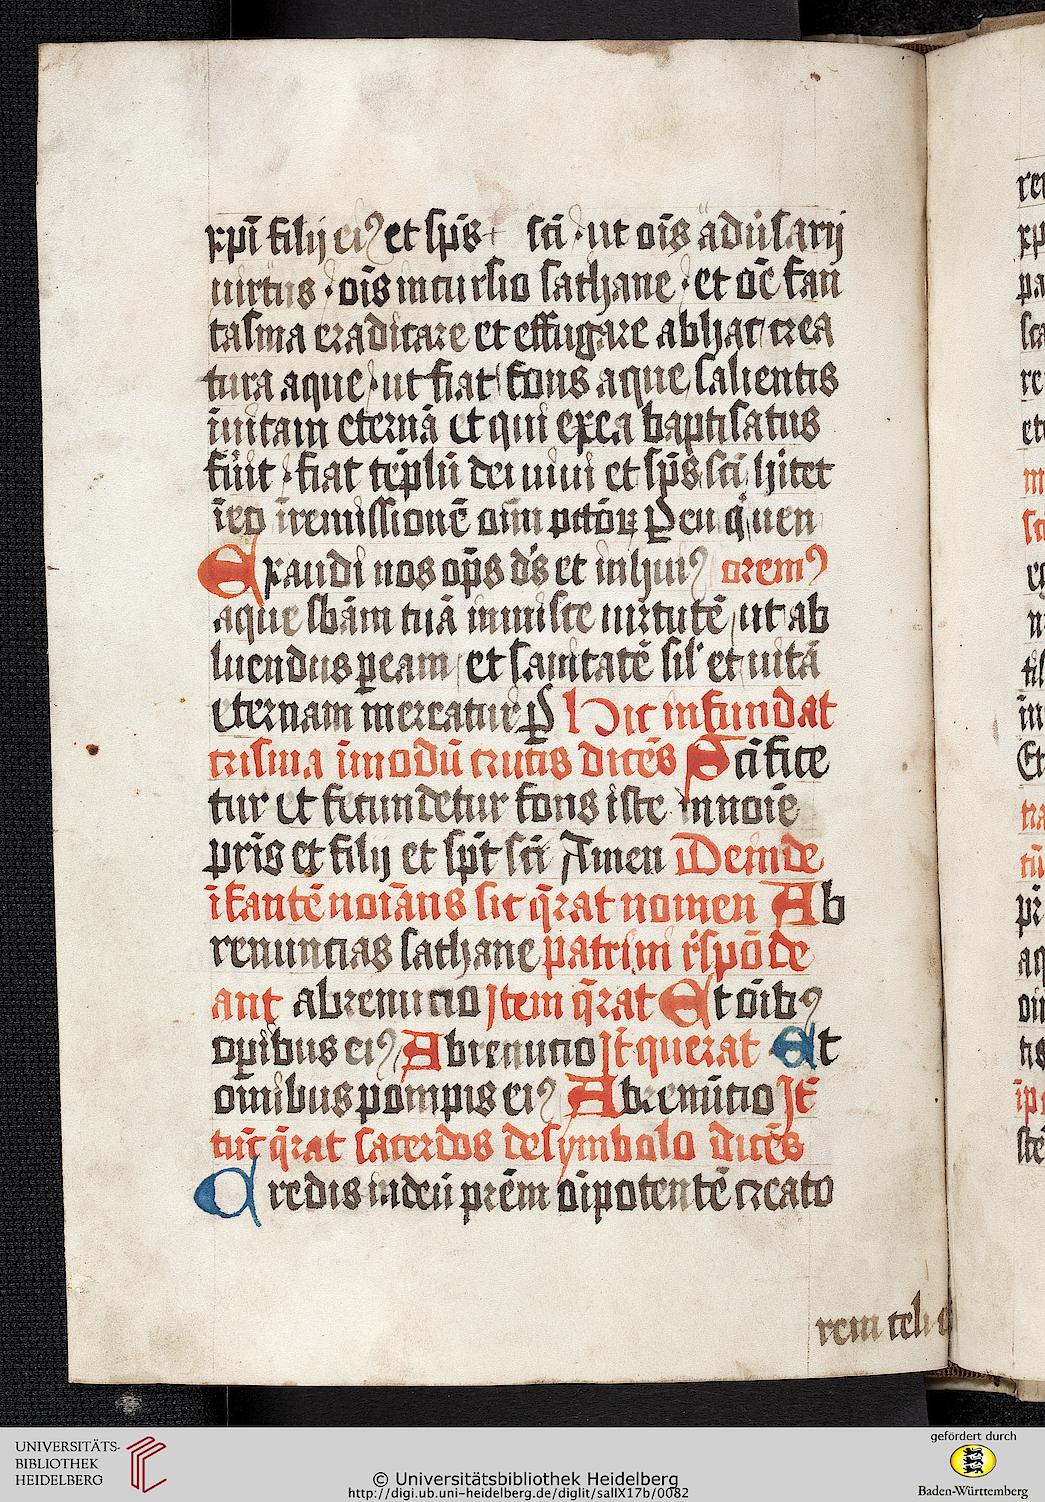 xpī filij ei⁹ et sp̄s + scī · ut oīs adūsarij
uirtus · oīs incursio sathane · et oē fan
tasma eradicare et effugare ab hac crea
tura aque · ut fiat fons aque salientis
in uitam eternā et qui ex ea baptisatus
fūit · fiat tēplū dei uiui et sp̄s scī hītet
ī eo ī remissionē oīm pctōꝝ P eu q̇ uen
Exaudi nos op̄s ds̄ et in hui⁹ orem⁹
aque sbām tuā inmiste uirtutē ut ab
luendus ꝑ eam et sanitatē sil̄ et uitā
eternam mereatur P Hic infundat
crisma ī modū crucis dicēs Scīfice
tur et fecundetur fons iste in noīe
pr̄is et filij et sp̄t scī Amen Deinde
īfantē noīans sic q̄rat nomen Ab
renuncias sathane patrini r̄spōde
ant abrenuncio Item q̄rat Et oīib⁹
oꝑibus ei⁹ Abrenūcio It̄ querat Et
omībus pompis ei⁹ Abrenūcio It̄
tūc q̄rat sacerdos de symbolo dicēs
Credis in deū pr̄em oīpotentē creato
rem celi
UNIVERSITÄTS-
BIBLIOTHEK
HEIDELBERG
© Universitätsbibliothek Heidelberg
http://digi.ub.uni-heidelberg.de/diglit/salIX17b/0082
gefördert durch
Baden-Württemberg